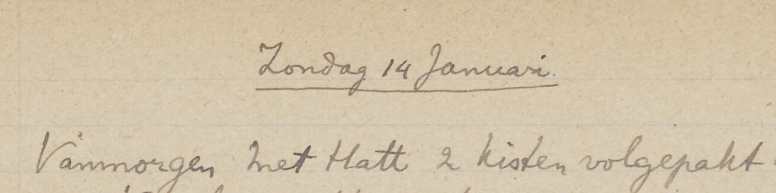 Zondag 14 Januari.
Vanmorgen met Hatt 2 kisten volgepakt.